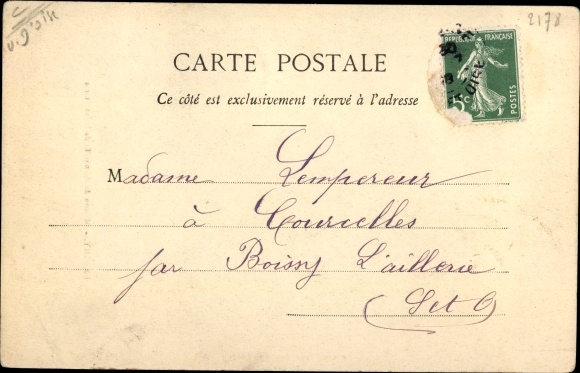 2178
RÉPUBLIQUE FRANÇAISE
5c
POSTES
CARTE POSTALE
Ce côté est exclusivement réservé à l'adresse
Madame Lempereur
à Courcelles
par Boissy L'aillerie
(Set O)